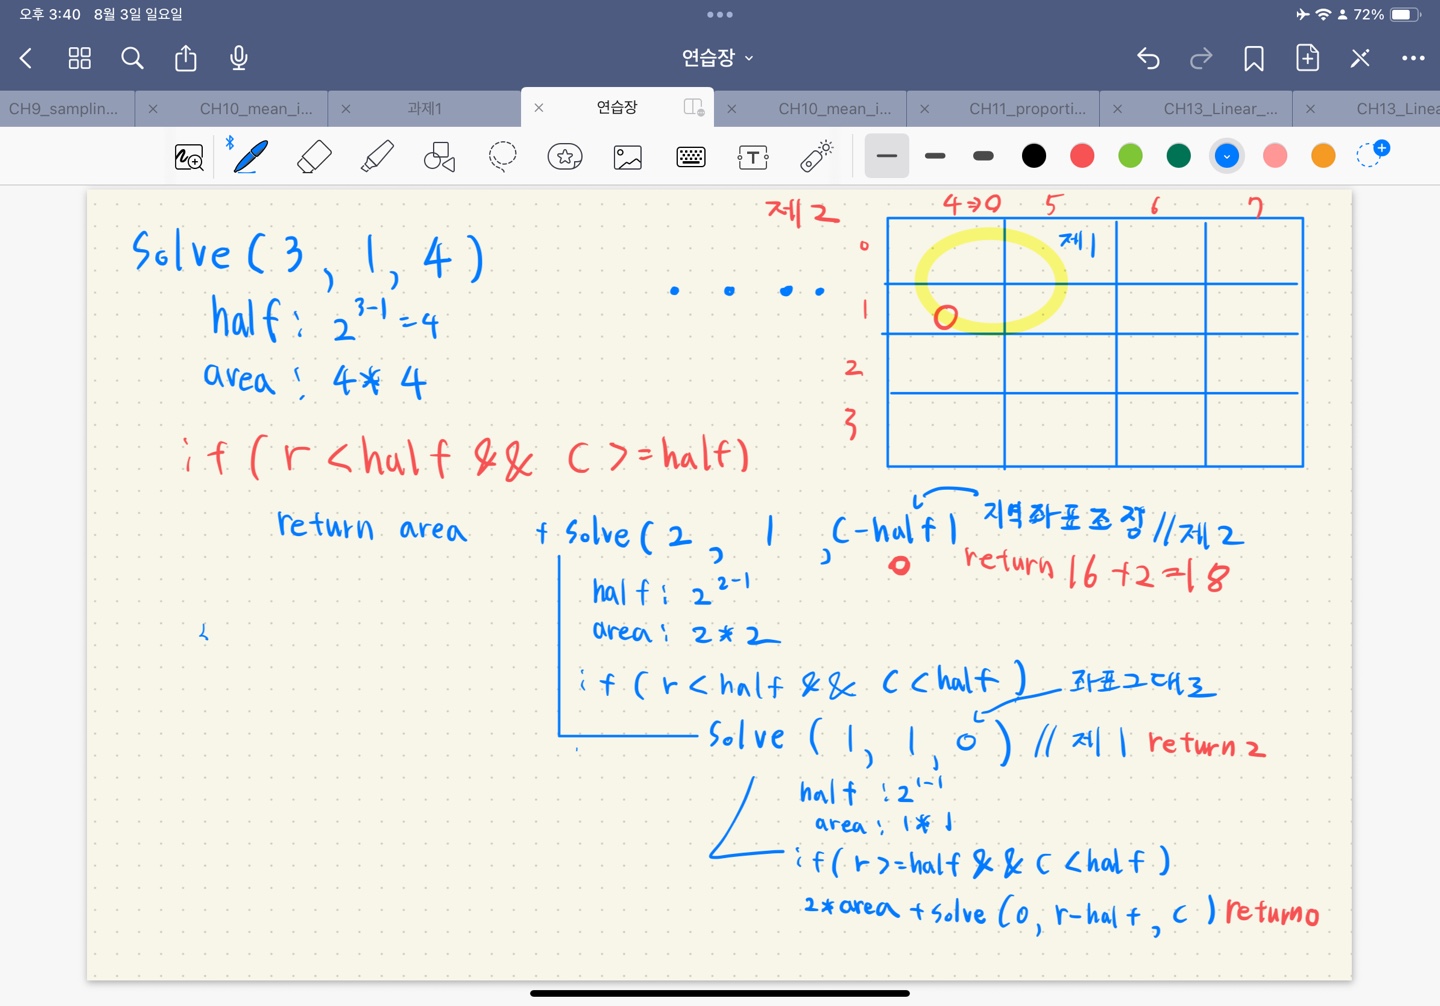 오후 3:40 8월 3일 일요일
72%
연습장
CH9_samplin...
CH10_mean_i...
과제1
연습장
CH10_mean_i...
CH11_proporti...
CH13_Linear_...
CH13_Linea
T
제2
4⇒0 5 6 7
0
1
2
3
제1
0
Solve(3, 1, 4)
half: 2^3-1=4
area: 4* 4
if(r<half && c>=half)
return area + solve(2, 1, c-half) 지역좌표조정 //제2
0
return 16+2=18
half: 2^2-1
area: 2*2
if(r<half && c<half) 좌표그대로
Solve(1, 1, 0) //제1 return 2
half: 2^1-1
area: 1*1
if(r>=half && c<half)
2*area + solve(0, r-half, c) return 0